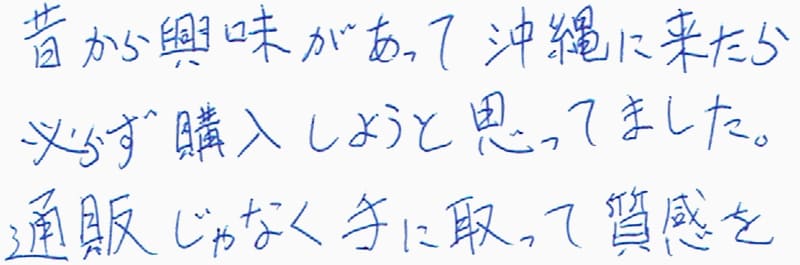 昔から興味があって沖縄に来たら
必らず購入しようと思ってました。
通販じゃなく手に取って質感を